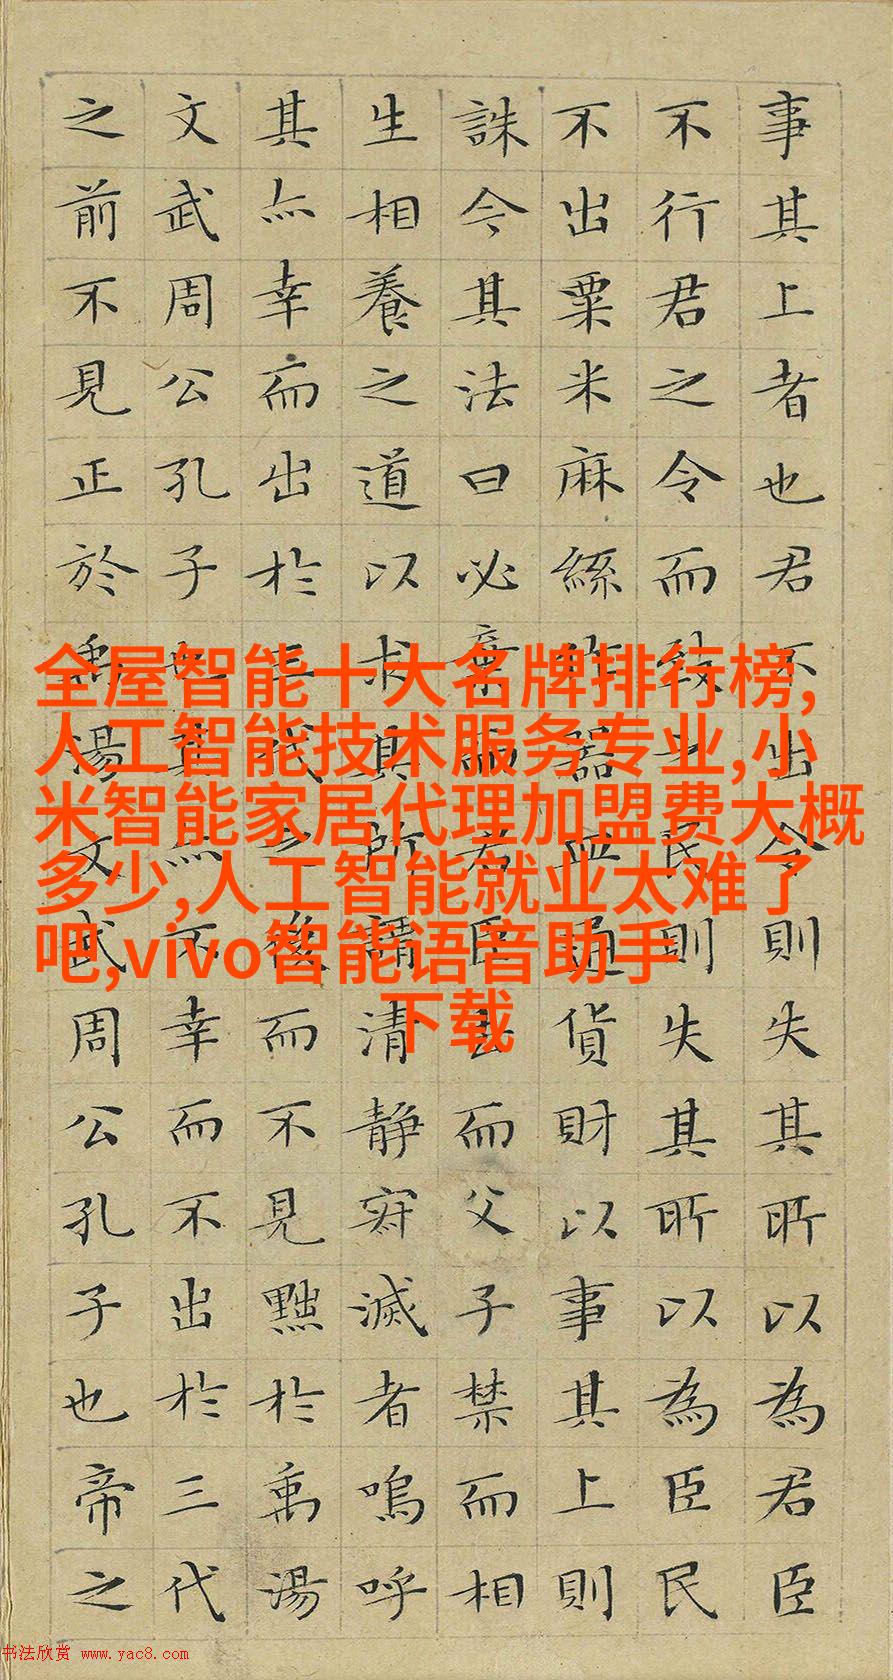 事其上者也君不出令則失其所以為君臣
不行君之令而致之民則失其所以為臣民
不出粟米麻絲作器皿通貨財以事其上則
誅今其法曰必棄而君臣去而父子禁而相
生相養之道以求其所謂清静寂滅者嗚呼
其亦幸而出於三代之後而不見黜於禹湯
文武周公孔子也其亦不幸而不出於三代
之前不見正於禹湯文武周公孔子也帝之
全屋智能十大名牌排行榜,
人工智能技术服务专业,小
米智能家居代理加盟费大概
多少,人工智能就业太难了
吧,vivo智能语音助手
下载
书法欣赏 www.yac8.com